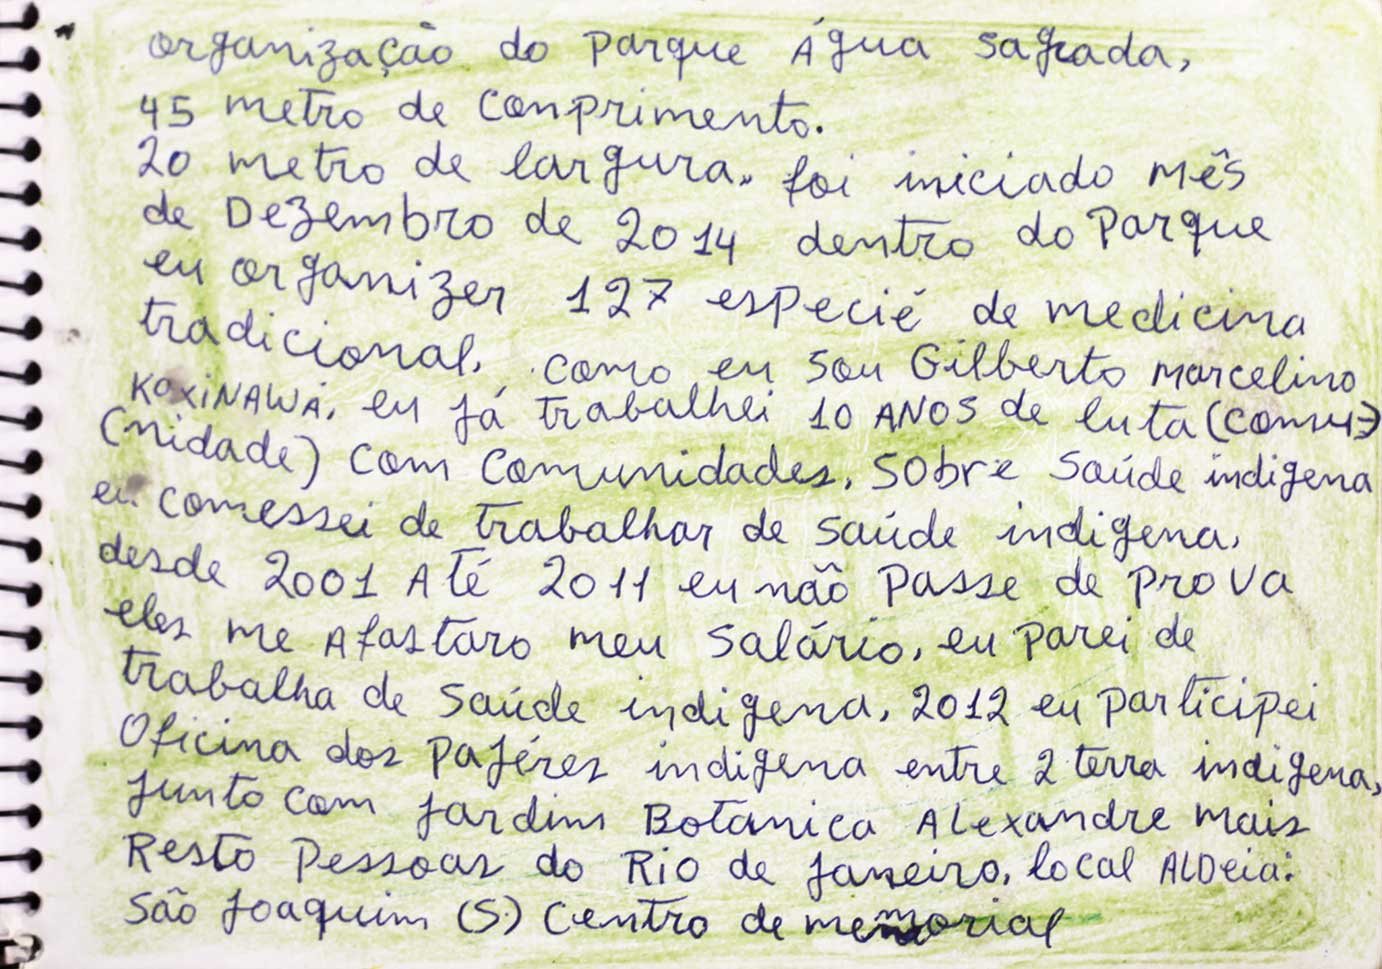 organização do parque Água sagrada,
45 metro de conprimento.
20 metro de largura. foi iniciado mês
de Dezembro de 2014 dentro do Parque
eu organizer 127 especié de medicina
tradicional. como eu sou Gilberto marcelino
KaxiNAWÁ. eu já trabalhei 10 ANOS de luta (comu
(nidade) com comunidades. sobre saúde indigena
eu comessei de trabalhar de saúde indigena.
desde 2001 Até 2011 eu não passe de prova
eles me Afastaro meu salário. eu parei de
trabalha de saúde indigena. 2012 eu participei
Oficina dos pajéres indigena entre 2 terra indigena,
junto com jardim Botanica Alexandre mais
Resto Pessoas do Rio de janeiro. local ALDeia:
São joaquim (S.) Centro de memorial